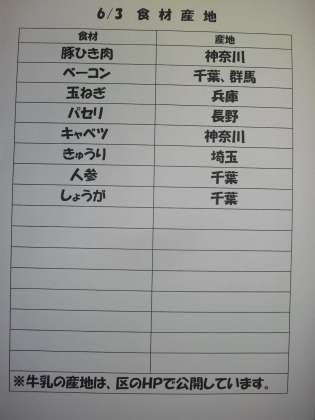 6/3 食材産地
食材 産地
豚ひき肉 神奈川
ベーコン 千葉、群馬
玉ねぎ 兵庫
パセリ 長野
キャベツ 神奈川
きゅうり 埼玉
人参 千葉
しょうが 千葉
※牛乳の産地は、区のHPで公開しています。